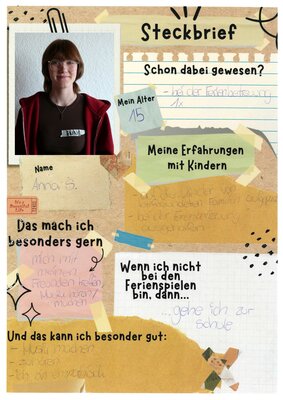 Steckbrief
Schon dabei gewesen?
- bei der Ferienbetreuung
1x
Mein Alter
15
Meine Erfahrungen
mit Kindern
Name
Anna S.
- auf die Kinder von
- bei der Ferienbetreuung
ausgeholfen
Das mach ich
besonders gern
mich mit
meinen
Freunden treffen
Musik hören/
machen
Wenn ich nicht
bei den
Ferienspielen
bin, dann...
...gehe ich zur
Schule
Und das kann ich besonder gut:
- Musik machen
- zuhören
- ich bin